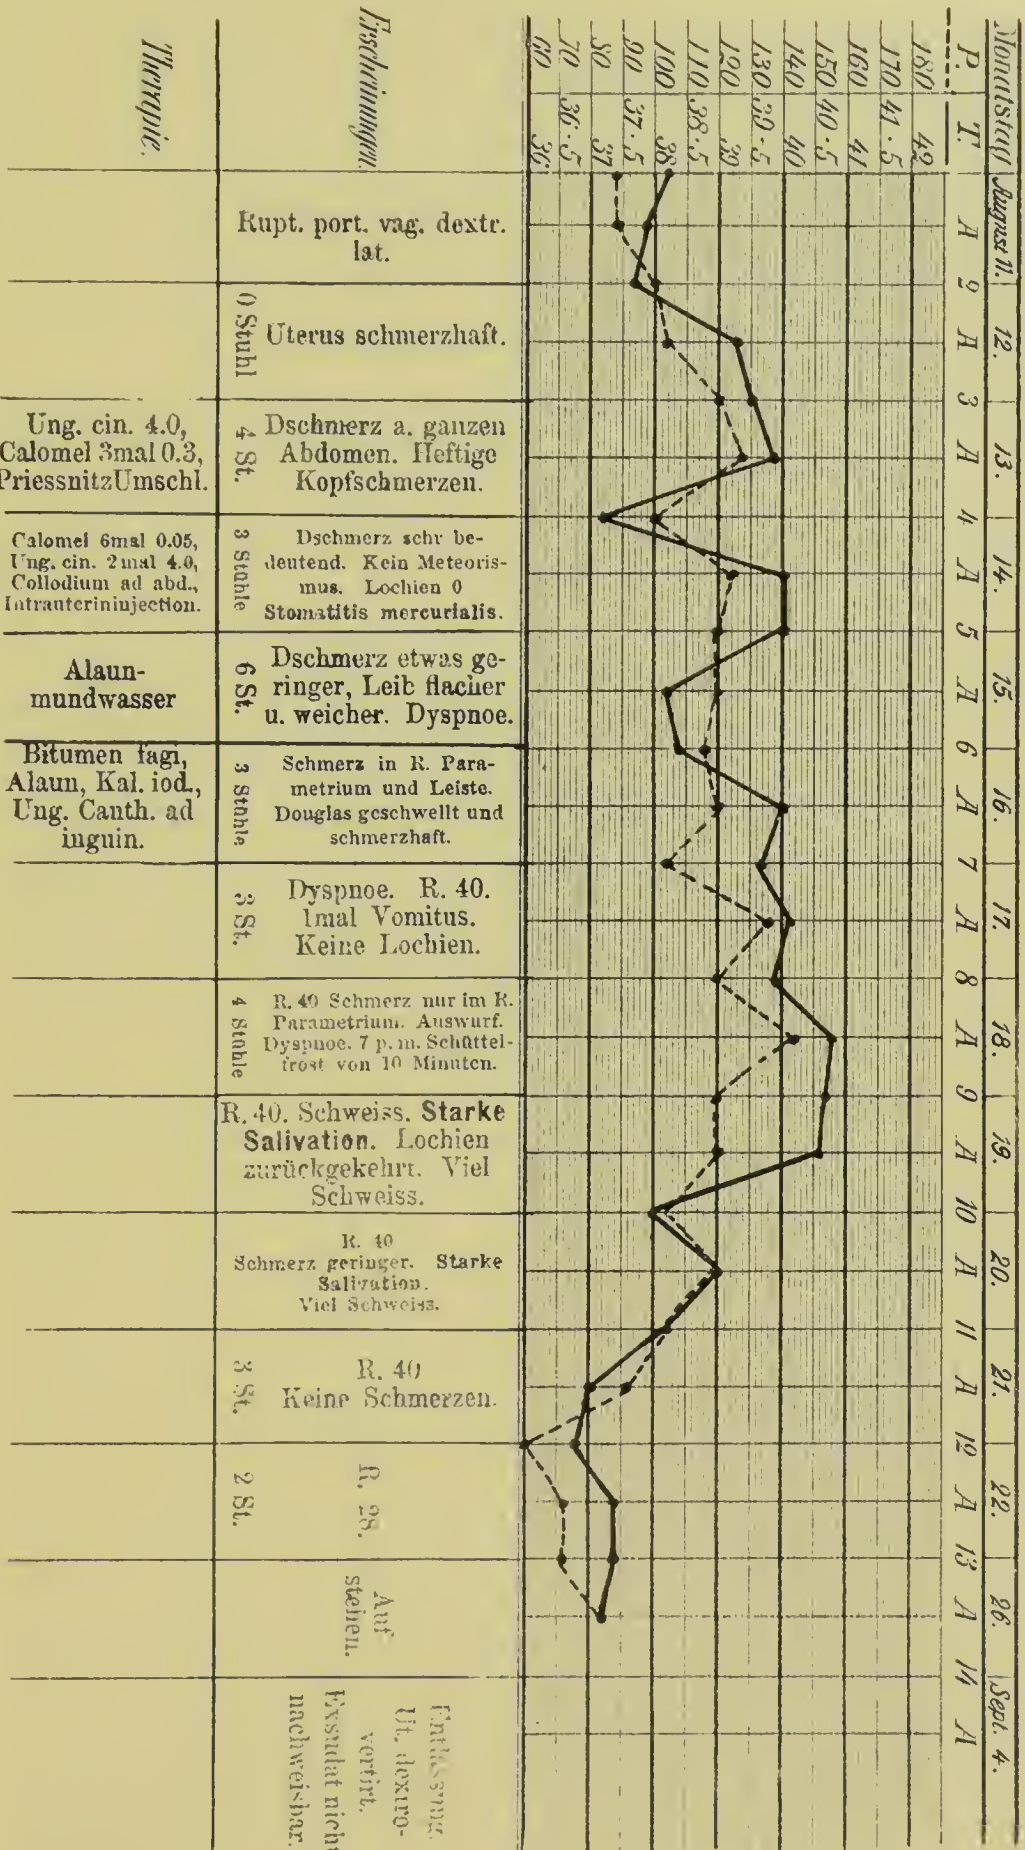 Monatstag August 11. 12. 13. 14. 15. 16. 17. 18. 19. 20. 21. 22. 26. Sept. 4.
P. T. A 2 A 3 A 4 A 5 A 6 A 7 A 8 A 9 A 10 A 11 A 12 A 13 A 14 A
180 42
170 41·5
160 41
150 40·5
140 40
130 39·5
120 39
110 38·5
100 38
90 37·5
80 37
70 36·5
60 36
Erscheinungen.
Rupt. port. vag. dextr.
lat.
0 Stuhl
Uterus schmerzhaft.
4 St.
Dschmerz a. ganzen
Abdomen. Heftige
Kopfschmerzen.
3 Stühle
Dschmerz sehr be-
deutend. Kein Meteoris-
mus. Lochien 0
Stomatitis mercurialis.
6 St.
Dschmerz etwas ge-
ringer, Leib flacher
u. weicher. Dyspnoe.
3 Stühle
Schmerz in R. Para-
metrium und Leiste.
Douglas geschwellt und
schmerzhaft.
3 St.
Dyspnoe. R. 40.
1mal Vomitus.
Keine Lochien.
4 Stühle
R. 40 Schmerz nur im R.
Parametrium. Auswurf.
Dyspnoe. 7 p. m. Schüttel-
frost von 10 Minuten.
R. 40. Schweiss. Starke
Salivation. Lochien
zurückgekehrt. Viel
Schweiss.
R. 40
Schmerz geringer. Starke
Salivation.
Viel Schweiss.
3 St.
R. 40
Keine Schmerzen.
2 St.
R. 28.
Auf
stehen.
Entlassung.
Ut. dextro-
vertirt.
Exsudat nicht
nachweisbar.
Therapie.
Ung. cin. 4.0,
Calomel 3mal 0.3,
Priessnitz Umschl.
Calomel 6mal 0.05,
Ung. cin. 2mal 4.0,
Collodium ad abd.,
Intrauterininjection.
Alaun-
mundwasser
Bitumen fagi,
Alaun, Kal. iod.,
Ung. Canth. ad
inguin.